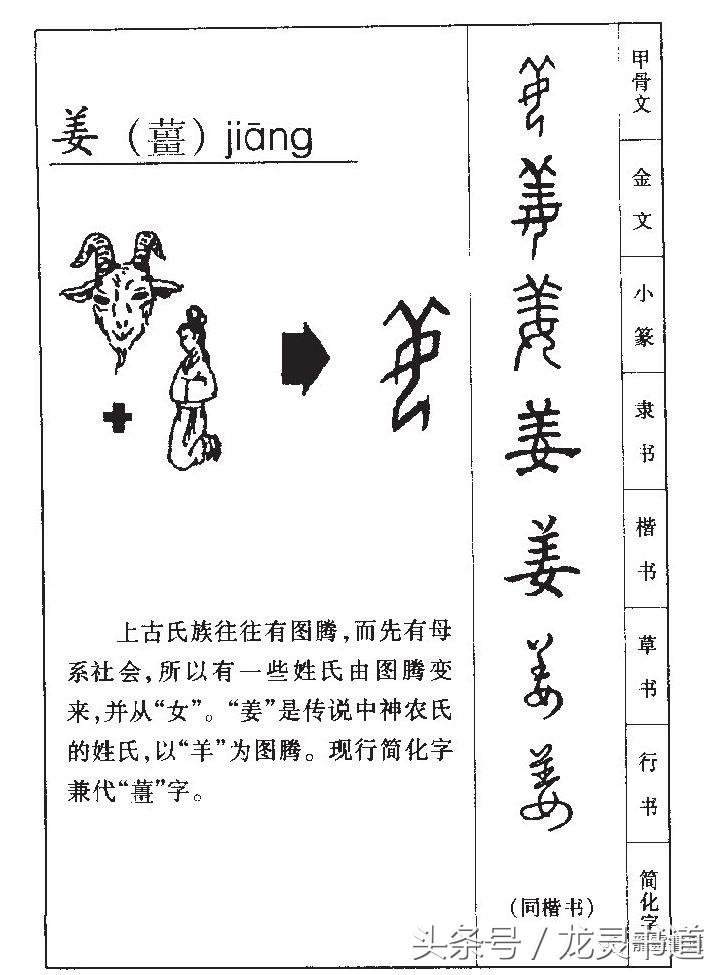 姜（薑）jiāng
上古氏族往往有图腾，而先有母
系社会，所以有一些姓氏由图腾变
来，并从“女”。“姜”是传说中神农氏
的姓氏，以“羊”为图腾。现行简化字
兼代“薑”字。
姜
姜
姜
姜
姜
姜
姜
（同楷书）
甲骨文
金文
小篆
隶书
楷书
草书
行书
简化字
头条号／龙灵书道